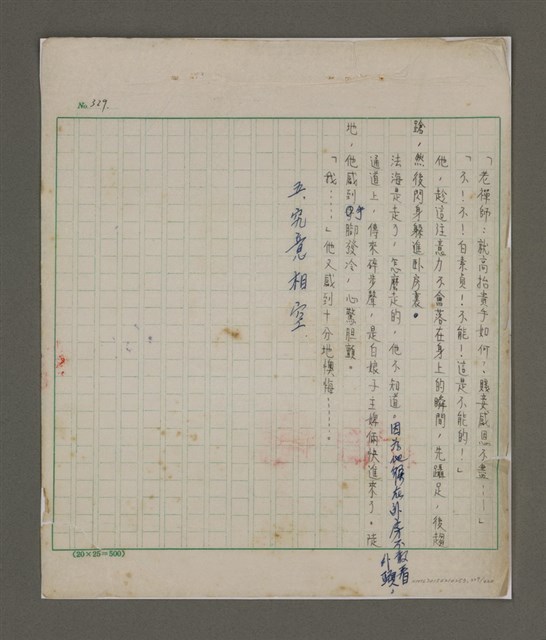 No. 329.
「老禪師：就高抬貴手如何？賤妾感恩不盡——」
「不！不！白素貞！不能！這是不能的！」
他，趁這注意力不會落在身上的瞬間，先躡足，後趨
蹌，然後閃身躲進卧房裏。
法海是走了，怎麼走的，他不知道。因為他縮在卧房不敢看外頭，
通道上，傳來碎步聲，是白娘子主婢倆快進來了。陡
地，他感到手脚發冷，心驚胆顫。
「我……」他又感到十分地懊悔……。
五 究竟相空
(20×25=500)